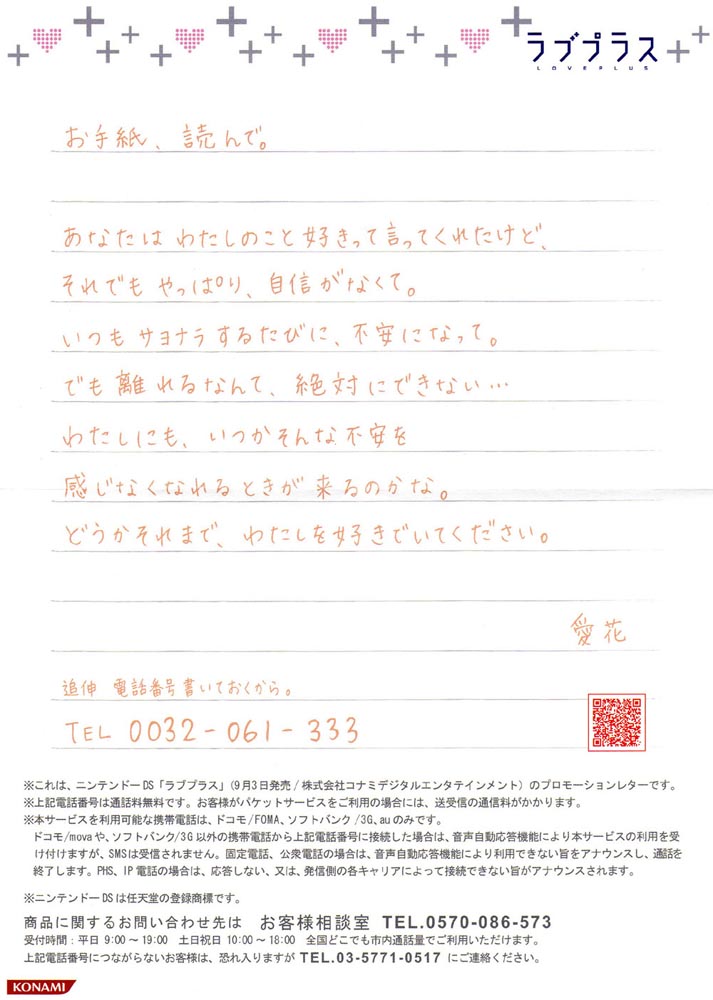 ラブプラス
LOVEPLUS
お手紙、読んで。
あなたは わたしのこと 好きって言ってくれたけど、
それでも やっぱり、自信がなくて。
いつも サヨナラするたびに、不安になって。
でも 離れるなんて、絶対にできない…
わたしにも、いつかそんな不安を
感じなくなれるときが 来るのかな。
どうかそれまで、わたしを好きでいてください。
愛花
追伸 電話番号書いておくから。
TEL 0032-061-333
※これは、ニンテンドーDS「ラブプラス」(9月3日発売/株式会社コナミデジタルエンタテインメント)のプロモーションレターです。
※上記電話番号は通話料無料です。お客様がパケットサービスをご利用の場合には、送受信の通信料がかかります。
※本サービスを利用可能な携帯電話は、ドコモ/FOMA、ソフトバンク/3G、auのみです。
ドコモ/movaや、ソフトバンク/3G以外の携帯電話から上記電話番号に接続した場合は、音声自動応答機能により本サービスの利用を受
け付けますが、SMSは受信されません。固定電話、公衆電話の場合は、音声自動応答機能により利用できない旨をアナウンスし、通話を
終了します。PHS、IP電話の場合は、応答しない、又は、発信側の各キャリアによって接続できない旨がアナウンスされます。
※ニンテンドーDSは任天堂の登録商標です。
商品に関するお問い合わせ先は お客様相談室 TEL.0570-086-573
受付時間:平日 9:00〜19:00 土日祝日 10:00〜18:00 全国どこでも市内通話量でご利用いただけます。
上記電話番号につながらないお客様は、恐れ入りますが TEL.03-5771-0517 にご連絡ください。
KONAMI